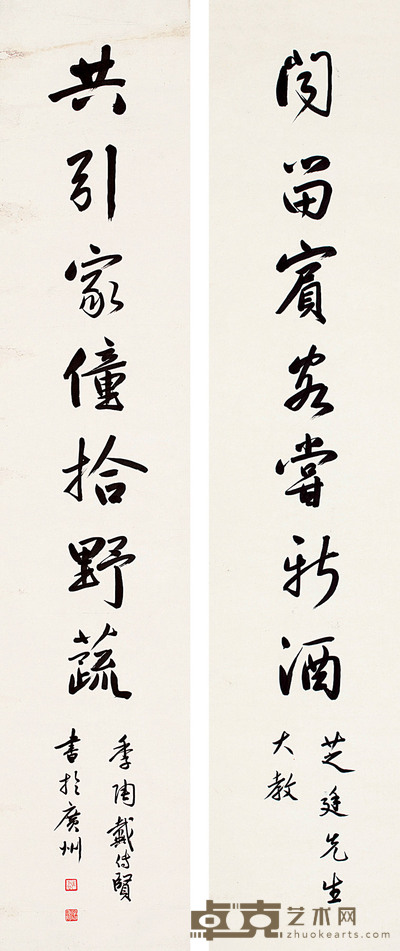 閒留賓客嘗新酒
芝廷先生
大教
共引家僮拾野蔬
季陶戴傳賢
書於廣州
卓克艺术网
zhuokearts.com